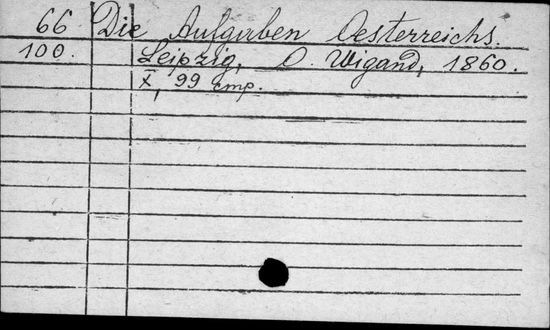 66 Die Aufgaben Oesterreichs.
100. Leipzig, O. Wigand, 1860.
X, 99 стр.